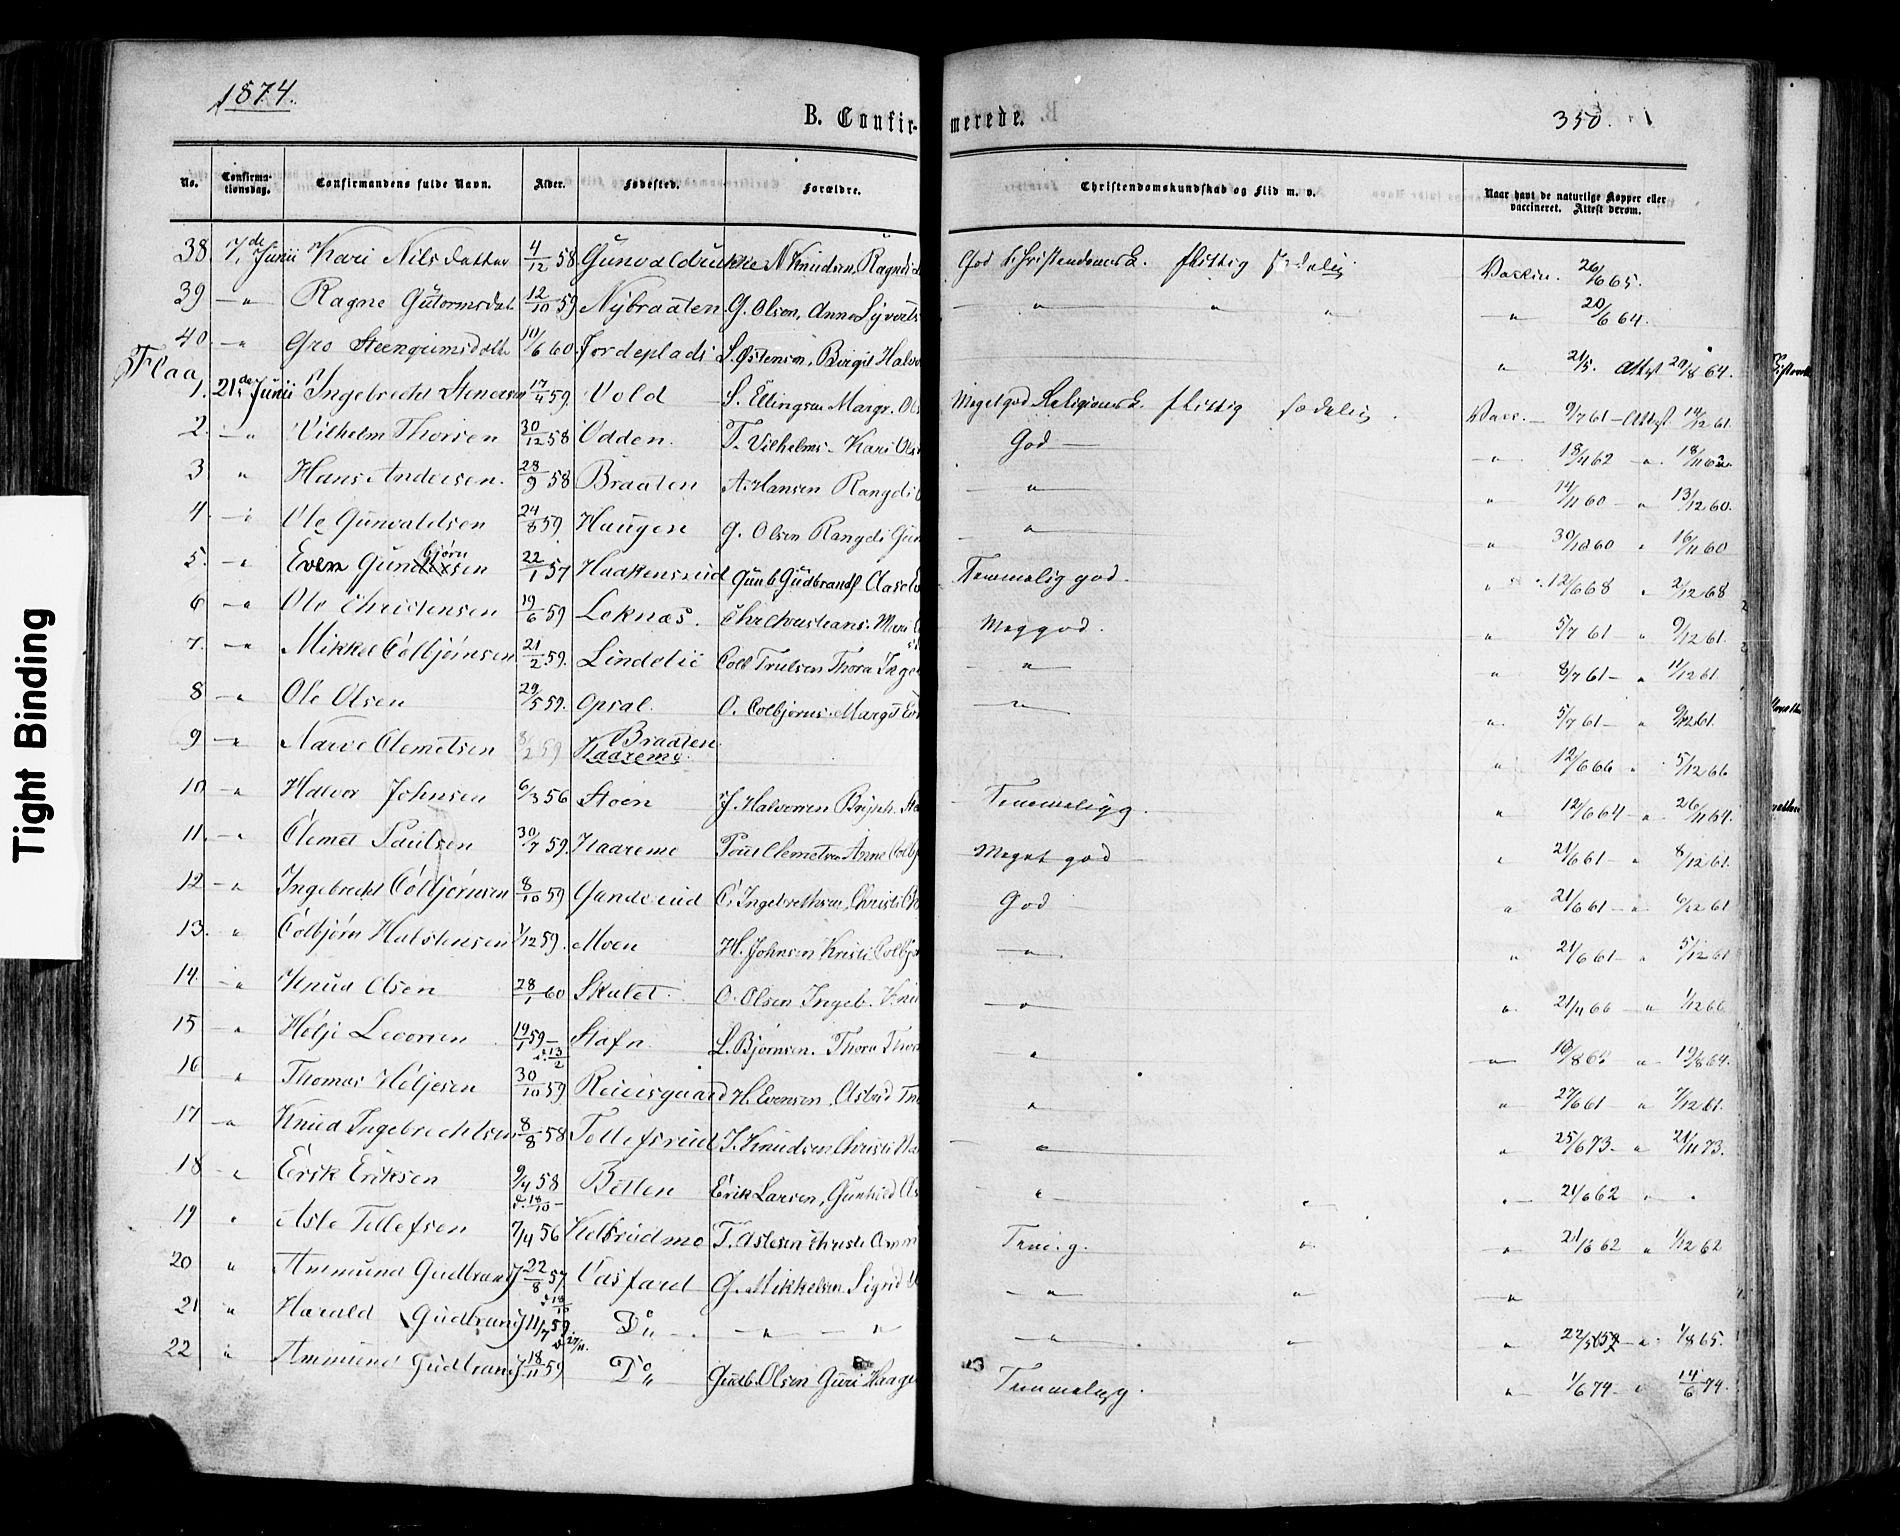 1874.
B. Confir-merede.
350.
No. Confirma-tionsdag. Confirmandens fulde Navn. Alder. Fødested. Forældre. Christendomskundskab og Flid m. v. Naar havt de naturlige Kopper eller vaccineret. Attest derom.
38. 7de Junii Kari Nilsdatter 4/12 58 Gunvaldbrukke N Knudsen, Ragndi God Christendomsk. flittig sædelig Vaccin. 26/6 65.
39 — " Ragne Gutormsdat 12/10 59 Nybraaten G. Olsen, Anne Syverts — " " " — " 20/6 64.
40. — " Gro Steengrimsdatte 10/6 60 Jordeplads S. Østensen, Birgit Halvo " 21/5. Attest 20/8 64.
Flaa
1. 21de Junii Ingebrecht Stenersen 17/4 59. Vold S. Ellingsen Margr. Ols Meget god Religionsk. flittig sædelig. Vacc. — 9/7 61 — Attest 14/12 61.
2. — " Vilhelm Thorsen 30/12 58 Odden. T. Vilhelms. Kari Ols God — — " — 18/4 62 — " 18/11 62
3 " Hans Andersen. 28/9 58 Braaten A. Hansen Rangdi — " — " 14/11 60 — " 13/12 60.
4. — " Ole Gunvaldsen 24/8 59 Haugen G. Olsen Rangdi Gun " — " 30/10 60 " 16/11 60
5. — " Even Gunbjørnsen 22/1 57 Haakensrud Gunb Gudbrands Aase Temmelig god. " 12/6 68 " 2/12 68
6 — " Ole Christensen 19/6 59 Leknæs. Chr Christians. Mari Meg god. " 5/7 61 " 9/12 61.
7. — " Mikkel Colbjørnsen 21/2 59. Lindelie Colb Trulsen Thora Inge — " — — " 8/7 61 — " 11/12 61
8 — " Ole Olsen 29/5 59. Opsal. O. Colbjørns. Margit — " — " — 5/7 61 — " 9/12 61.
9 — " Narve Clemetsen 8/2 59 Braaten Haaremo. " 12/6 66 " 5/12 66
10 — " Halvor Johnsen 6/3 56 Støen J. Halvorsen Temmelig g. — " 12/6 64 — " 26/11 64.
11. — " Clemet Paulsen 30/7 59. Haareme Paul Clemetsen Anne Colbj Meget god " 21/6 61 — " 8/12 61.
12 — " Ingebrecht Colbjørnsen 8/10 59 Ganderud C. Ingebrethsen, Christi God " 21/6 61 — " 6/12 61
13. — " Colbjørn Halstensen 1/12 59. Moen H. Johnsen Kristi Colbjø — " — " — 21/6 61 — " 5/12 61
14. — " Knud Olsen 28/1 60 Skulet. O. Olsen Ingeb. Knu — " — " — 21/4 66 — " 1/12 66
15 — " Helje Levorsen 19/1 59 — d. 13/2 Stafn. L. Bjørnsen. Thora Thor — " — — " — 10/8 64 " 19/8 64.
16 " Thomas Heljesen 30/10 59 Reiersgaard H. Evensen, Astrid " " 27/6 61 — " 7/12 61.
17 — " Knud Ingebrechtsen 8/8 58 Tollefsrud I. Knudsen Christi " " 25/6 73 — " 21/11 73.
18 — " Eirik Eriksen 9/4 58 d. 18/10 — Bitten Erik Larsen, Gunhild " " " — 21/6 62 " "
19 " Asle Tollefsen 7/4 56 Kolsrudmo T. Aslesen Christi Amm Tem. g. " " 21/6 62 " 1/12 62
20 " Ammund Gudbrands 22/8 57 d 18/10 Vasfaret G. Mikkelsen Sigrid — " — " — " —
21 " Harald Gudbrands 11/7 59 d 27/11. Do " — — " — " — " — " " 22/5 " 1/8 65.
22 " Ammund Gudbrands 18/11 59 Do " Gudb. Olsen Guri Haage Temmelig g. " 1/6 74 — " 14/6 74.
Tight Binding